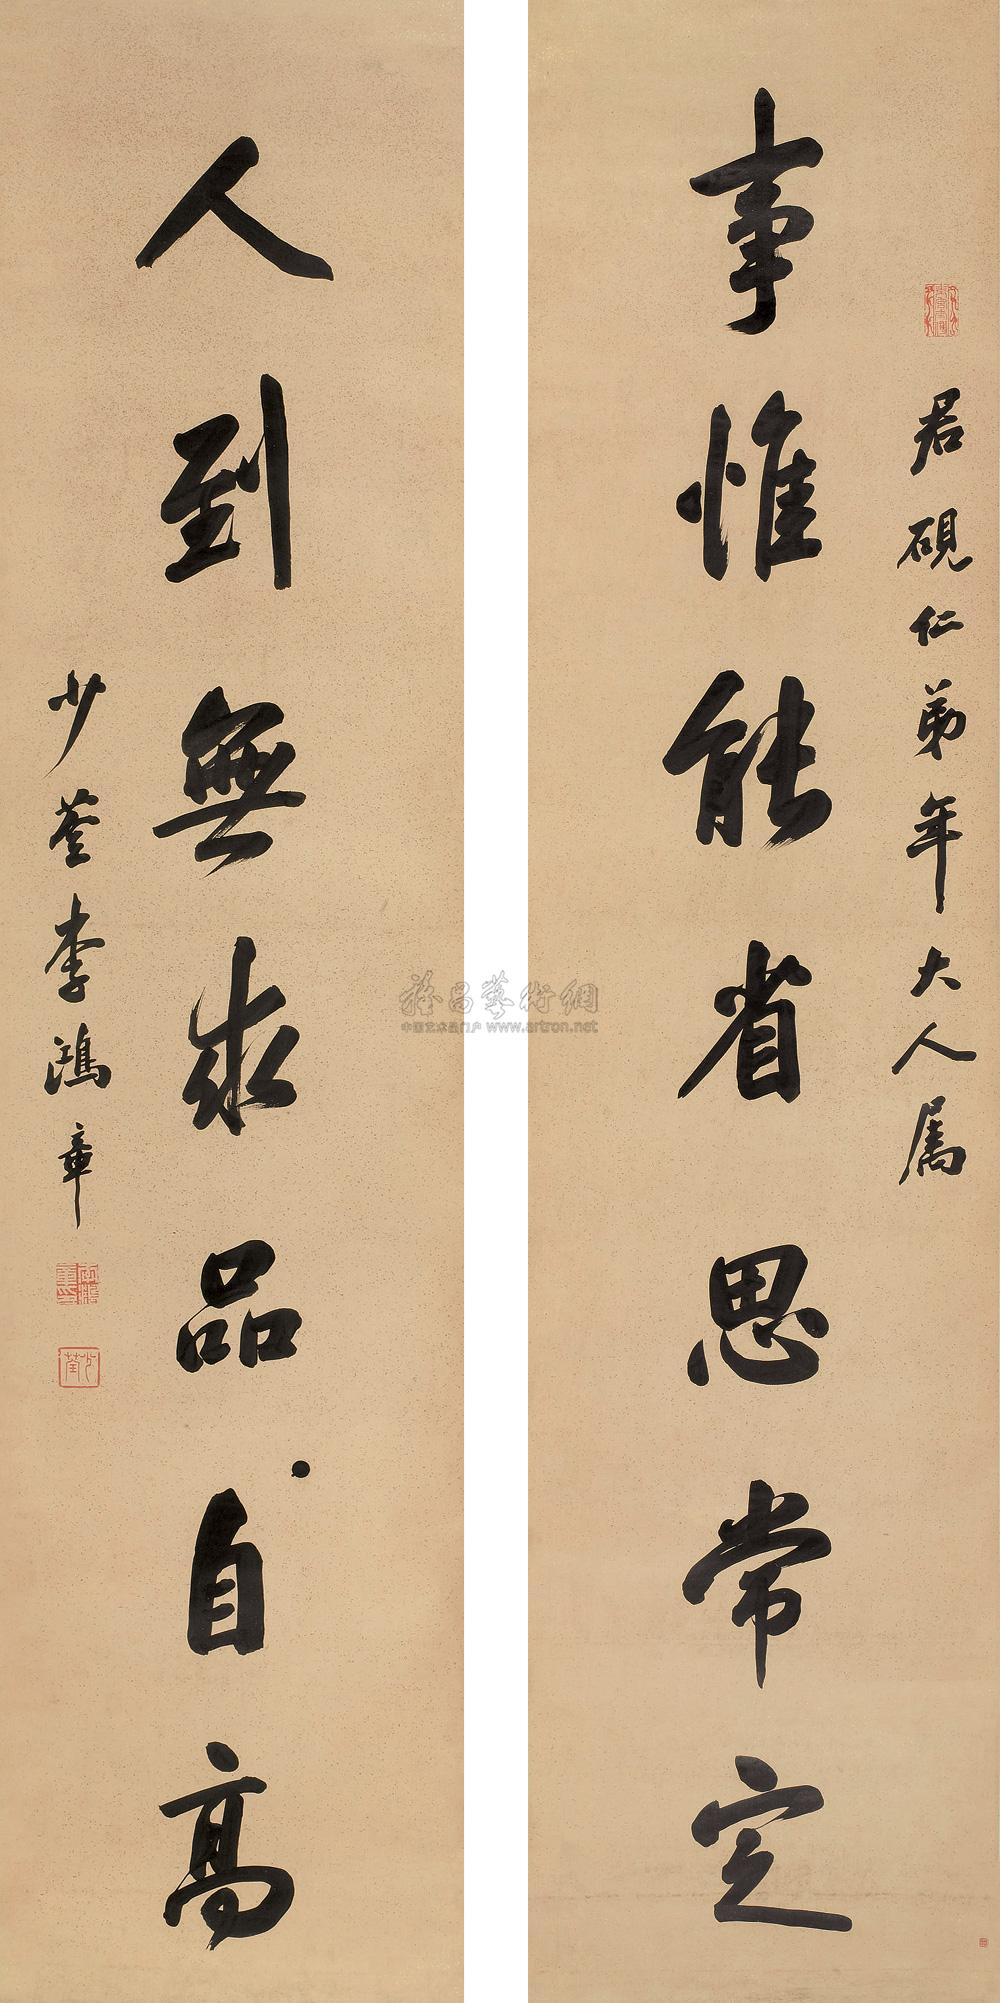 君硯仁弟年大人属
事惟能省思常定
人到無求品自高
少荃李鴻章
雅昌藝術網
中国艺术品门户 www.artron.net